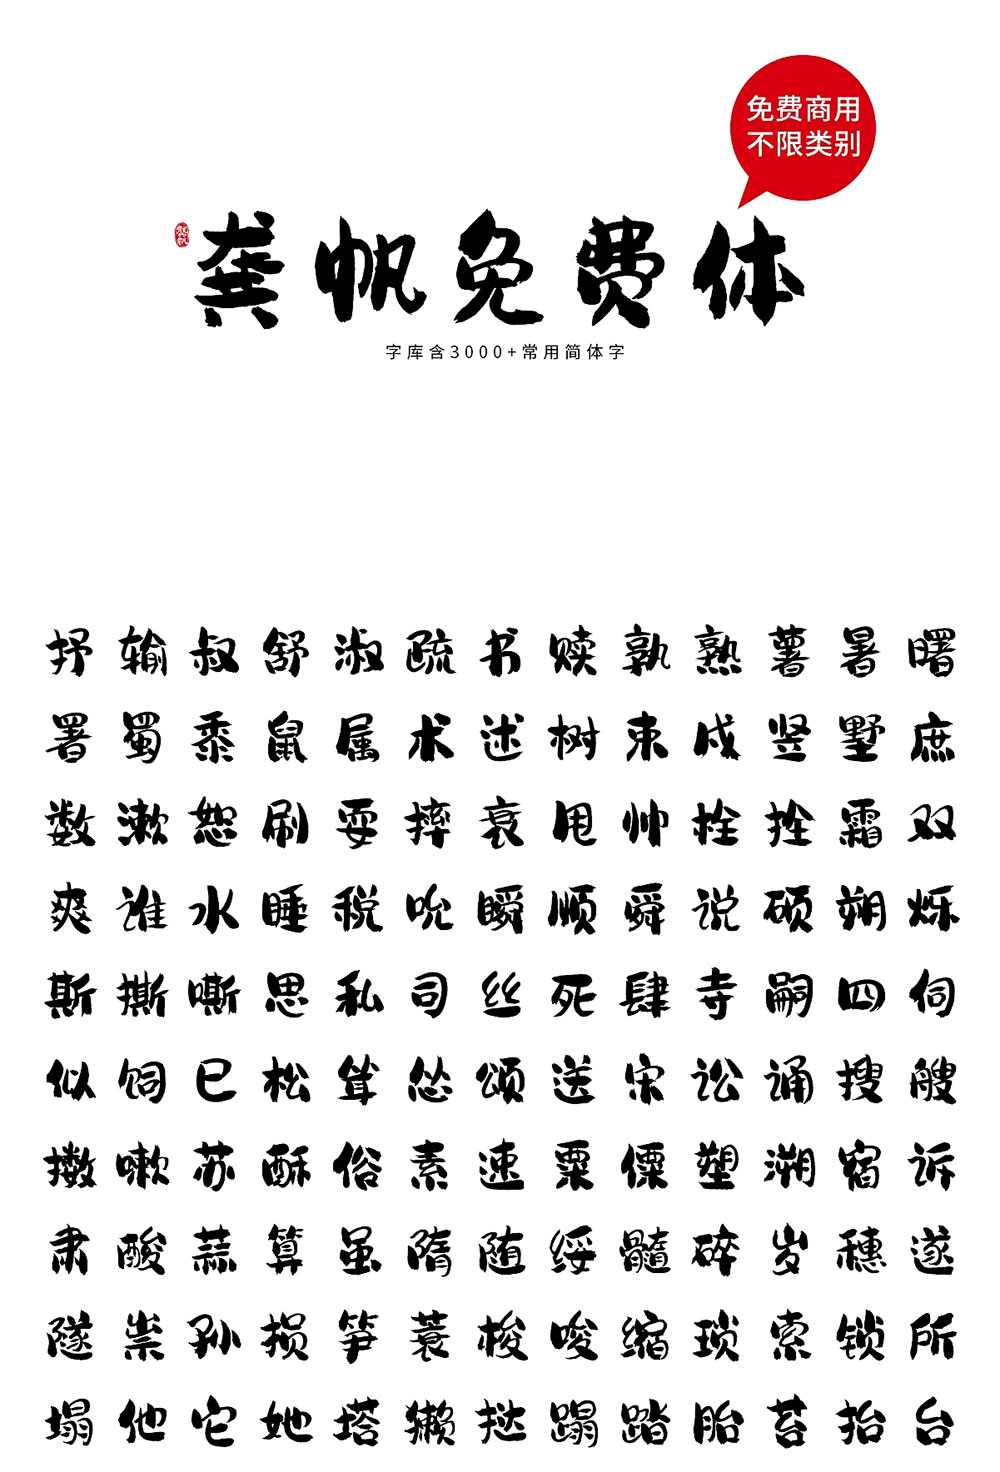 免费商用
不限类别
龚帆免费体
字库含3000+常用简体字
抒输叔舒淑疏书赎孰熟薯暑曙
署蜀黍鼠属术述树束戍竖墅庶
数漱恕刷耍摔衰甩帅栓拴霜双
爽谁水睡税吮瞬顺舜说硕朔烁
斯撕嘶思私司丝死肆寺嗣四伺
似饲巳松耸怂颂送宋讼诵搜艘
擞嗽苏酥俗素速粟僳塑溯宿诉
肃酸蒜算虽隋随绥髓碎岁穗遂
隧祟孙损笋蓑梭唆缩琐索锁所
塌他它她塔獭挞蹋踏胎苔抬台